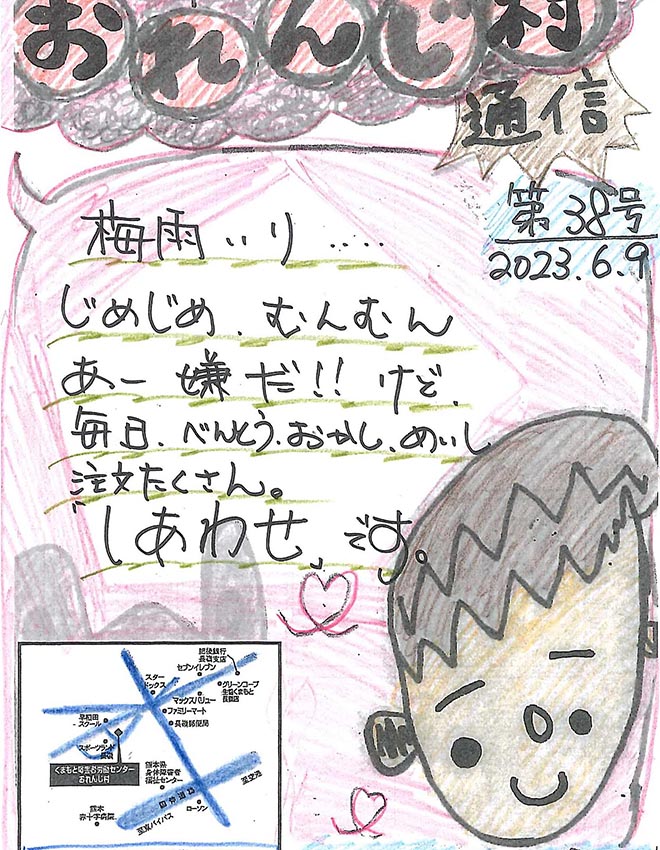 おれんじ村
通信
第38号
2023.6.9
梅雨いり・・・・・
じめじめ、むんむん
あー嫌だ!!けど、
毎日、べんとう、おかし、めいし
注文たくさん。
「しあわせ」です。
肥後銀行
長嶺支店
セブンイレブン
スター
ドックス
グリーンコープ
生協くまもと
長嶺店
マックスバリュー
ファミリーマート
早和田
スクール
長嶺郵便局
スポーツランド
くまもと障害者労働センター
おれんじ村
熊本県
身体障害者
福祉センター
至空港
熊本
赤十字病院
ローソン
至東バイパス